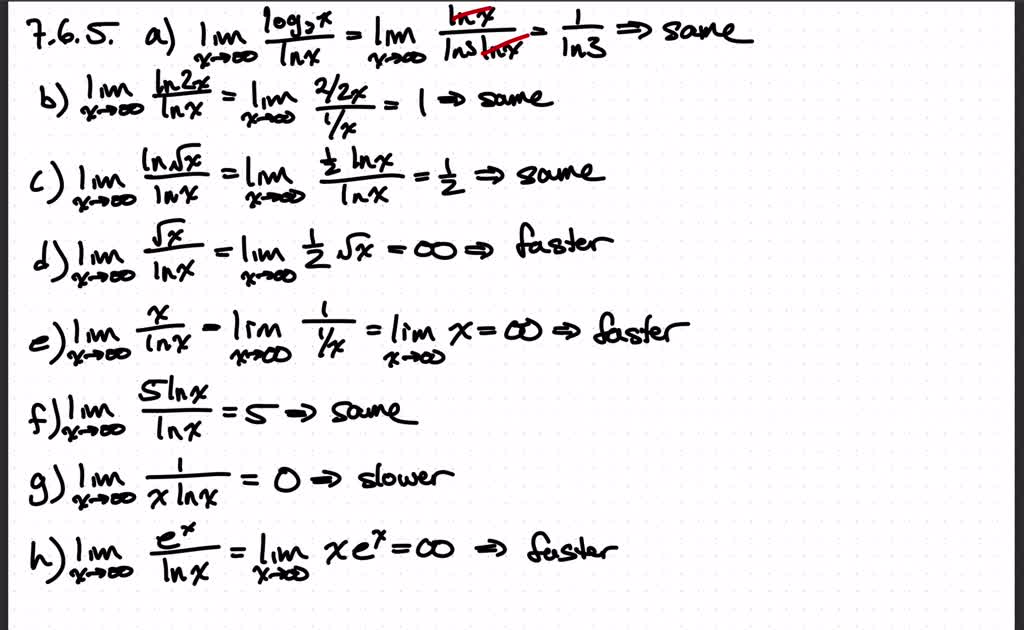 7.6.5. a) lim x→∞ log₃x / lnx = lim x→∞ lnx / ln3 lnx = 1/ln3 ⇒ same
b) lim x→∞ ln2x / lnx = lim x→∞ 2/2x / 1/x = 1 ⇒ same
c) lim x→∞ ln√x / lnx = lim x→∞ ½ lnx / lnx = ½ ⇒ same
d) lim x→∞ √x / lnx = lim x→∞ ½ √x = ∞ ⇒ faster
e) lim x→∞ x / lnx = lim x→∞ 1 / 1/x = lim x→∞ x = ∞ ⇒ faster
f) lim x→∞ 5lnx / lnx = 5 ⇒ same
g) lim x→∞ 1 / x lnx = 0 ⇒ slower
h) lim x→∞ eˣ / lnx = lim x→∞ xeˣ = ∞ ⇒ faster